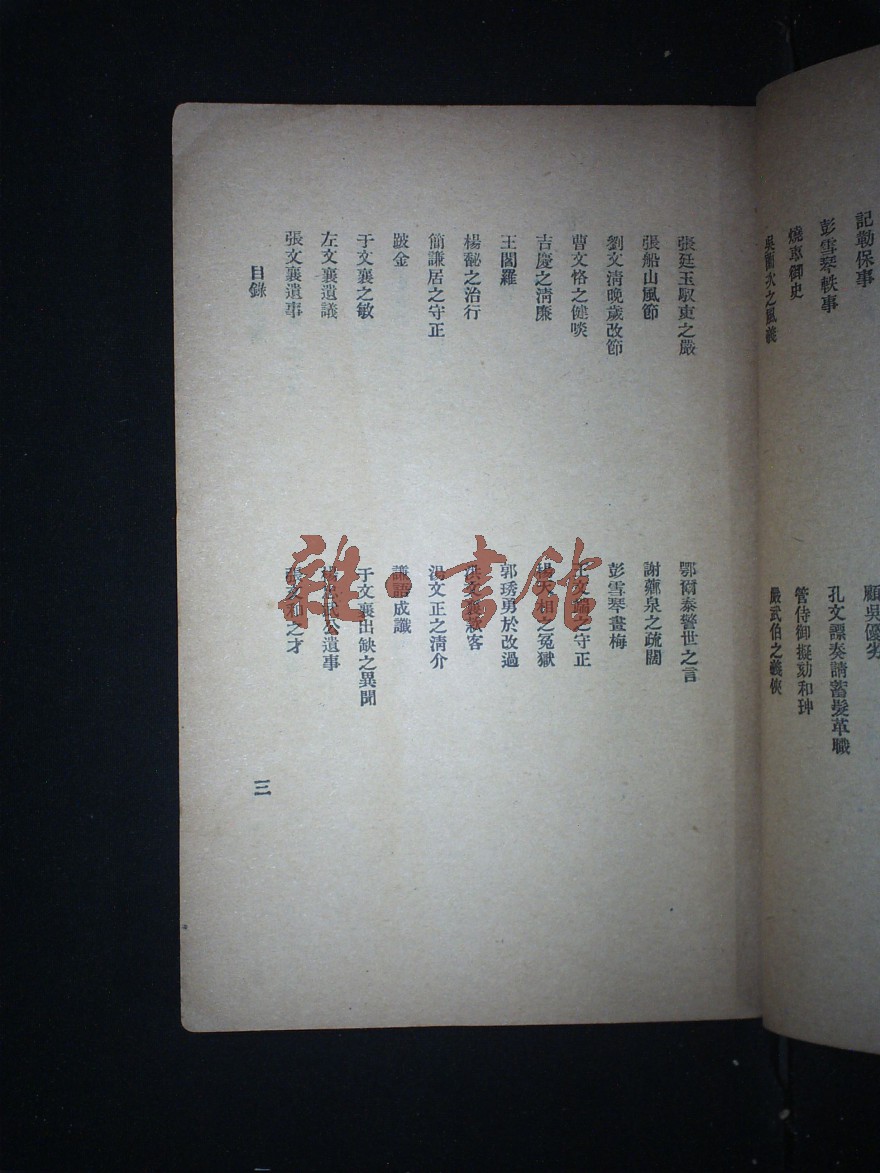 記勒保事
彭雪琴軼事
燒車御史
吳園次之風義
顧吳優劣
孔文諤奏請蓄髮革職
管侍御擬劾和珅
嚴武伯之義俠
張廷玉馭吏之嚴
張船山風節
劉文清晚歲改節
曹文恪之健啖
吉慶之清廉
王閻羅
楊馝之治行
簡謙居之守正
跛金
于文襄之敏
左文襄遺議
張文襄遺事
鄂爾泰警世之言
謝薌泉之疏闊
彭雪琴畫梅
王文端之守正
楊天相之冤獄
郭琇勇於改過
洪文襄款客
湯文正之清介
謙語成讖
于文襄出缺之異聞
遺事
張文和之才
目錄
三
雜·書館